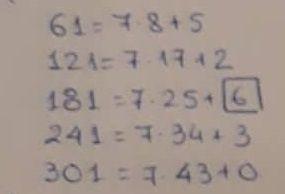 61 = 7·8+5
121 = 7·17+2
181 = 7·25+6
241 = 7·34+3
301 = 7·43+0